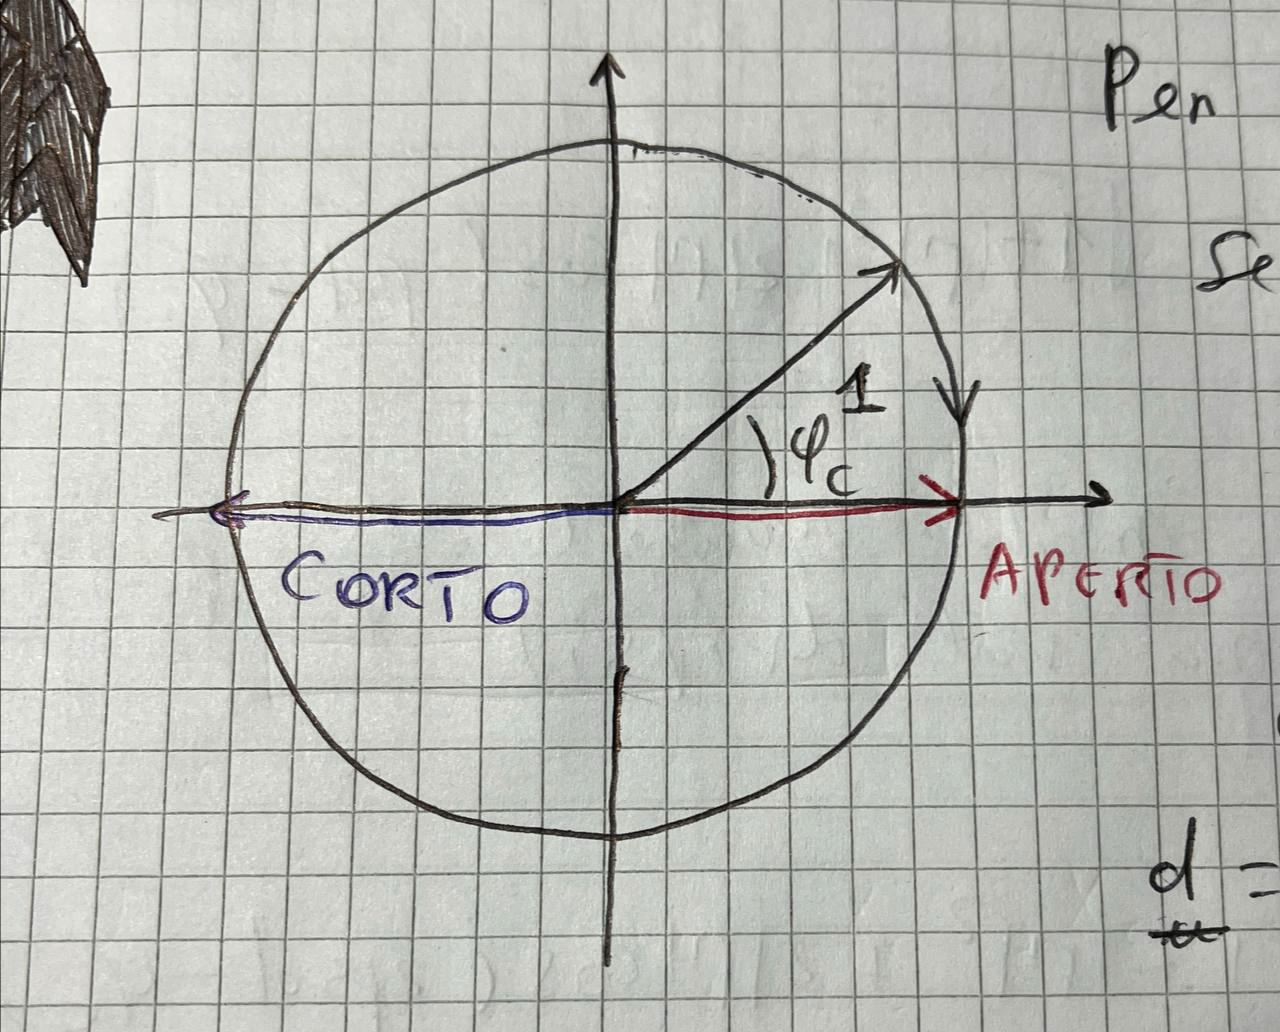 Per
Se
1
φc
CORTO
APERTO
d =